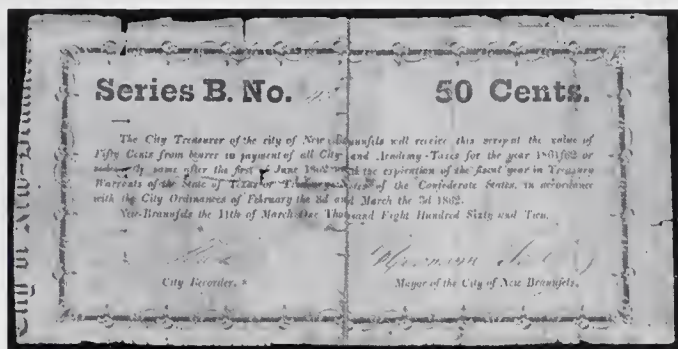 City of New-Braunfels
Series B. No.
50 Cents.
The City Treasurer of the city of New-Braunfels will receive this scrip at the value of
Fifty Cents from bearer in payment of all City and Academy-Taxes for the year 1861/62 or
redeem the same after the first of June 1862 the expiration of the fiscal year in Treasury
Warrants of the State of Texas or Treasury of the Confederate States, in accordance
with the City Ordinances of February the 3d and March the 3d 1862.
New-Braunfels the 11th of March One Thousand Eight Hundred Sixty and Two.
Hermann
City Recorder.
Mayor of the City of New Braunfels.